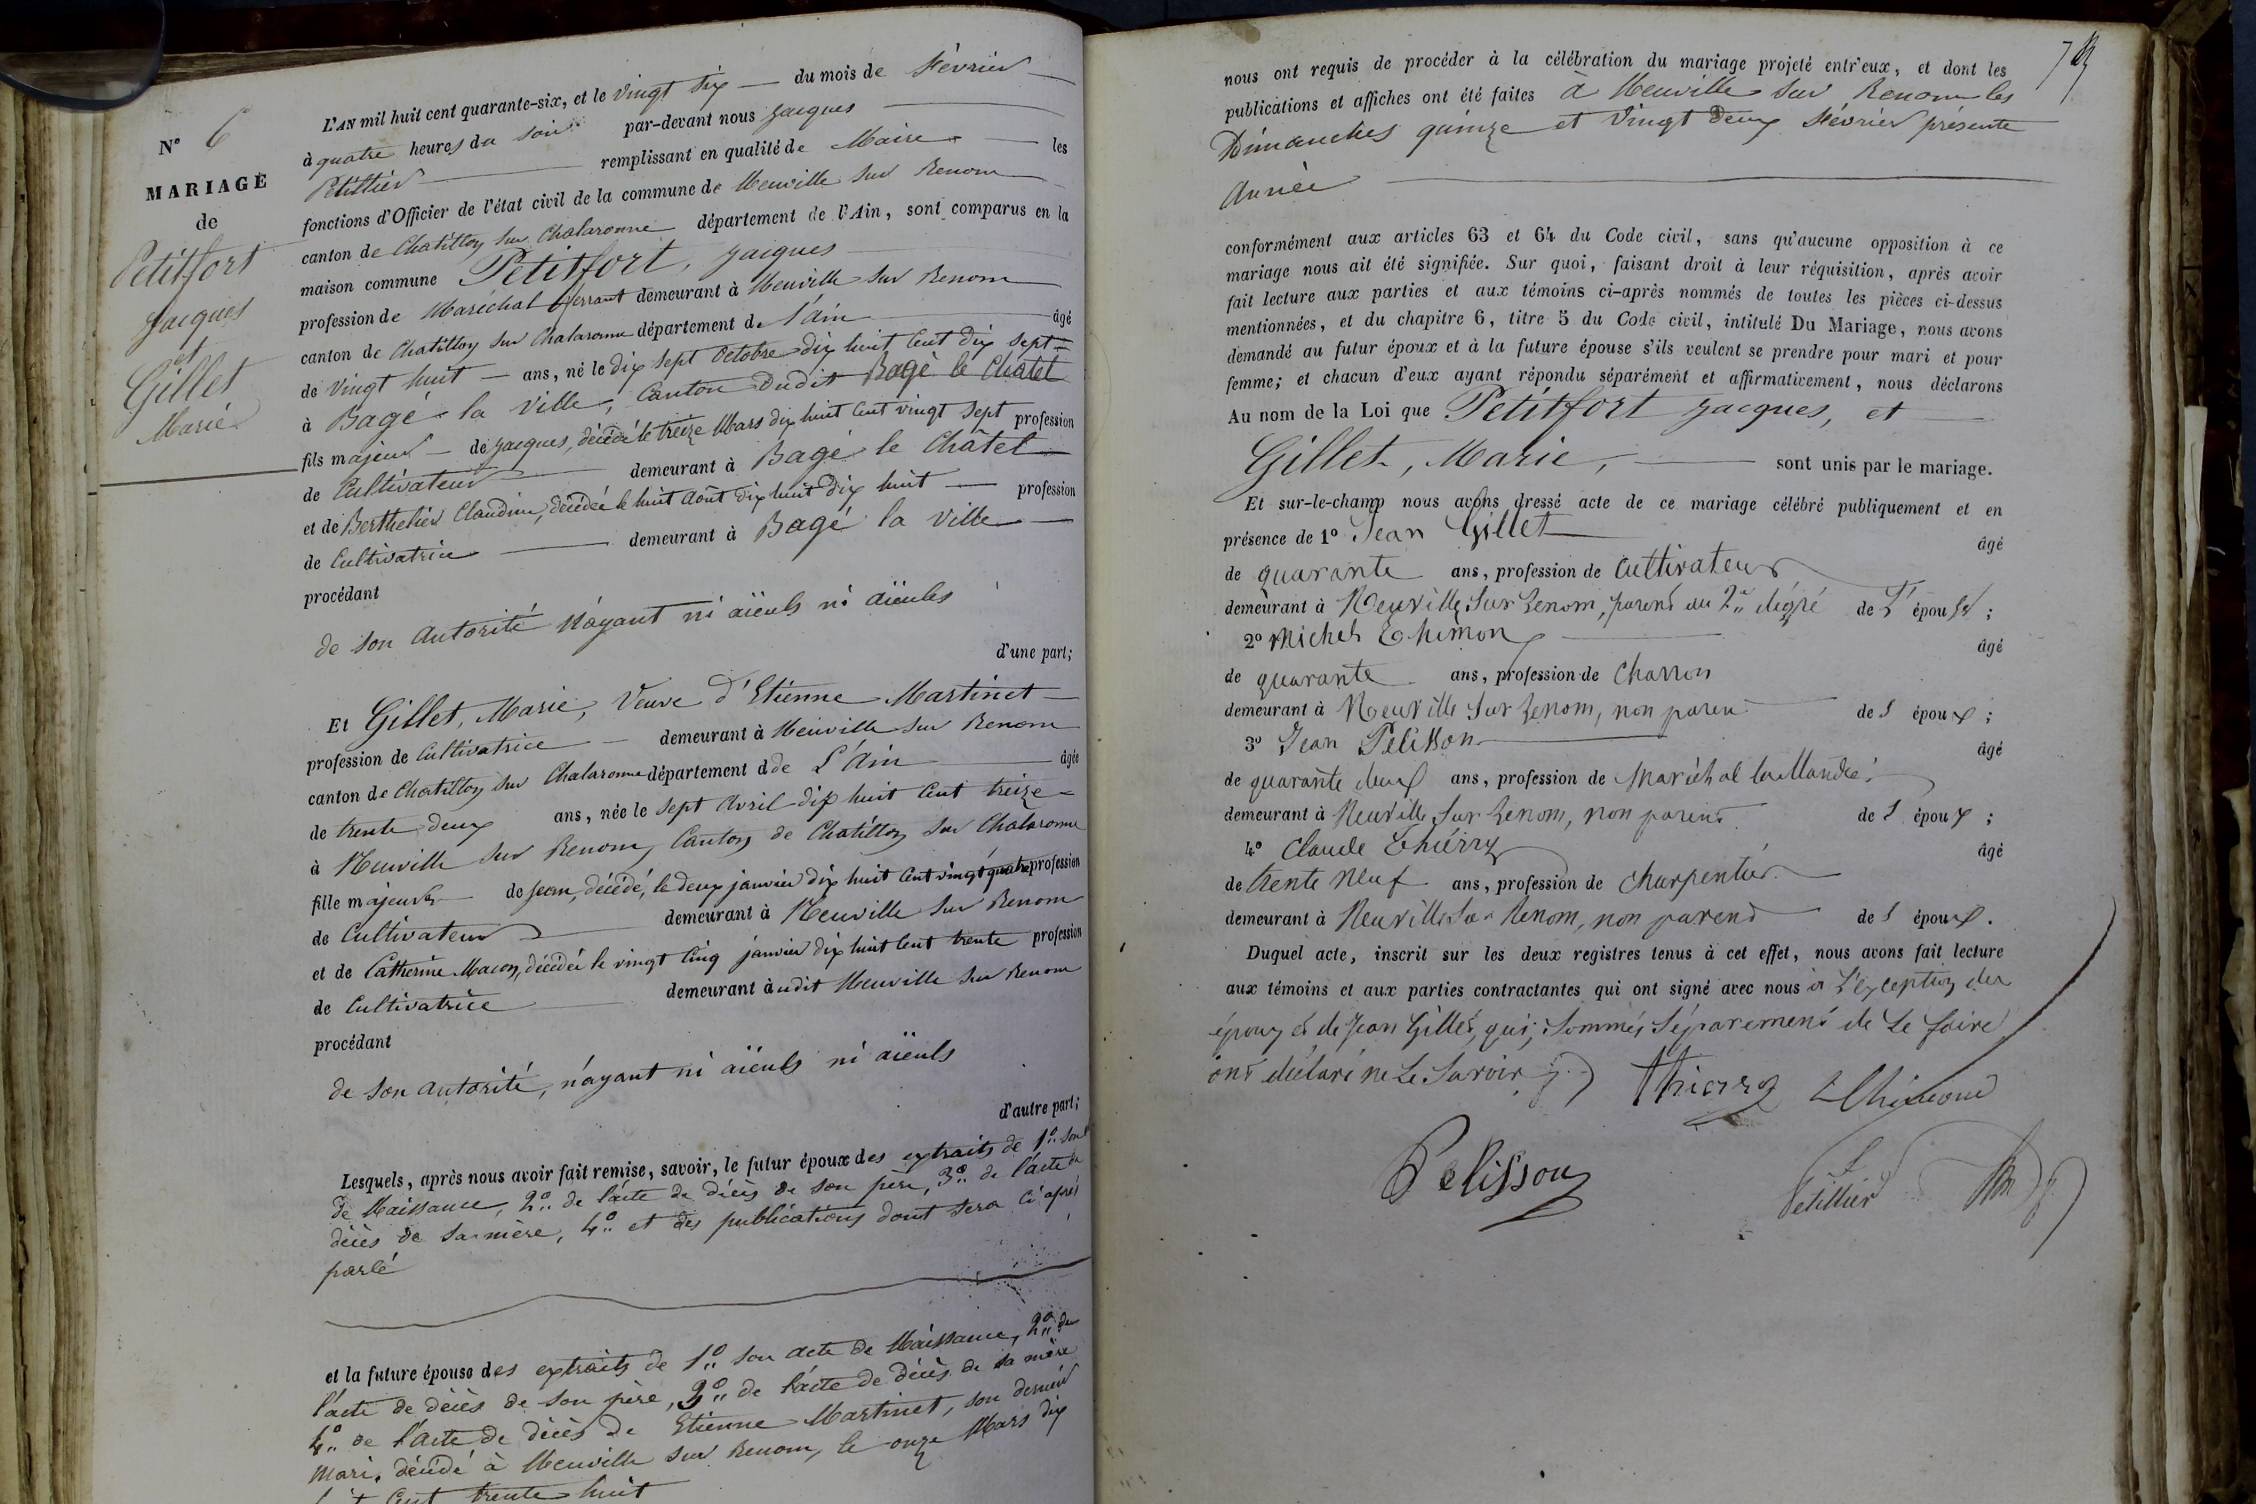 N° 6
MARIAGE
de
Petitfort
Jacques
et
Gillet
Marie
L'AN mil huit cent quarante-six, et le vingt six du mois de février
à quatre heures du soir par-devant nous Jacques
Petitier remplissant en qualité de Maire les
fonctions d'Officier de l'état civil de la commune de Neuville sur Renom
canton de Chatillon sur Chalaronne département de l'Ain, sont comparus en la
maison commune Petitfort, Jacques
profession de Maréchal ferrant demeurant à Neuville sur Renom
canton de Chatillon sur Chalaronne département de l'ain âgé
de vingt huit ans, né le dix sept octobre dix huit cent dix sept
à Bagé la ville, Canton dudit Bagé le Chatel
fils majeur de Jacques, décédé le treize Mars dix huit cent vingt sept profession
de Cultivateur demeurant à Bagé le Châtel
et de Berthelier Claudine, décédée le huit août dix huit dix huit profession
de Cultivatrice demeurant à Bagé la ville
procédant
de son autorité n'ayant ni aïeuls ni aïeules
d'une part;
Et Gillet, Marie, Veuve d'Etienne Martinet
profession de Cultivatrice demeurant à Neuville sur Renom
canton de Chatillon sur Chalaronne département d de L'Ain âgée
de trente deux ans, née le sept avril dix huit cent treize
à Neuville sur Renom, Canton de Chatillon sur Chalaronne
fille majeure de Jean, décédé, le deux janvier dix huit cent vingt quatre profession
de Cultivateur demeurant à Neuville sur Renom
et de Catherine Macon, décédée le vingt cinq janvier dix huit cent trente profession
de Cultivatrice demeurant àudit Neuville sur Renom
procédant
de son autorité, n'ayant ni aïeuls ni aïeuls
d'autre part;
Lesquels, après nous avoir fait remise, savoir, le futur époux des extraits de 1° son
de Naissance, 2° de l'acte de décès de son père, 3° de l'acte de
décès de sa mère, 4° et des publications dont sera ci après
parlé
et la future épouse des extraits de 1° son acte de Naissance, 2° de
l'acte de décès de son père, 3° de l'acte de décès de sa mère
4° de l'acte de décès de Etienne Martinet, son dernier
mari, décédé à Neuville sur Renom, le onze Mars dix
huit cent trente huit
nous ont requis de procéder à la célébration du mariage projeté entr'eux, et dont les
publications et affiches ont été faites à Neuville sur Renom les
Dimanches quinze et vingt deux février présente
année
conformément aux articles 63 et 64 du Code civil, sans qu'aucune opposition à ce
mariage nous ait été signifiée. Sur quoi, faisant droit à leur réquisition, après avoir
fait lecture aux parties et aux témoins ci-après nommés de toutes les pièces ci-dessus
mentionnées, et du chapitre 6, titre 5 du Code civil, intitulé Du Mariage, nous avons
demandé au futur époux et à la future épouse s'ils veulent se prendre pour mari et pour
femme; et chacun d'eux ayant répondu séparément et affirmativement, nous déclarons
Au nom de la Loi que Petitfort Jacques, et
Gillet, Marie, sont unis par le mariage.
Et sur-le-champ nous avons dressé acte de ce mariage célébré publiquement et en
présence de 1° Jean Gillet âgé
de quarante ans, profession de Cultivateur
demeurant à Neuville sur Renom, parent au 2e degré de l'épouse;
2° Michel Thimon âgé
de quarante ans, profession de Charron
demeurant à Neuville sur Renom, non parent de l époux;
3° Jean Pelisson âgé
de quarante deux ans, profession de Maréchal
demeurant à Neuville sur Renom, non parent de l époux;
4° Claude Thiérry âgé
de trente neuf ans, profession de Charpentier
demeurant à Neuville sur Renom, non parent de l époux.
Duquel acte, inscrit sur les deux registres tenus à cet effet, nous avons fait lecture
aux témoins et aux parties contractantes qui ont signé avec nous à l'exception des
époux et de Jean Gillet, qui, sommés séparément de le faire
ont déclaré ne le savoir
Thierry Thimond
Pelisson
Petitier